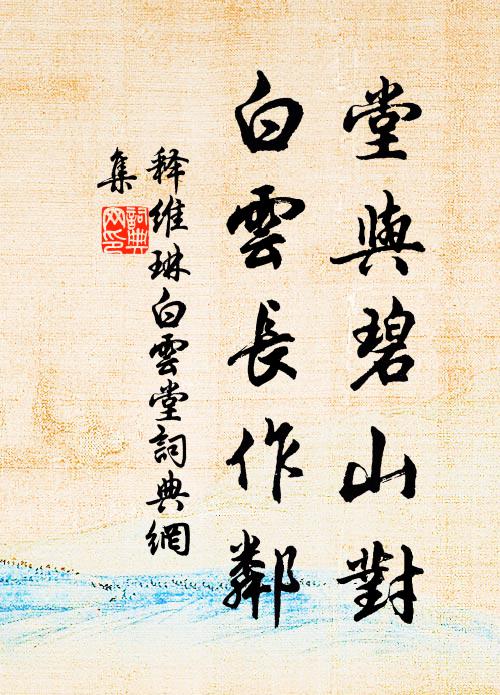 堂與碧山對
白雲長作鄰
释維琳白雲堂詞典網
集
詞典網印